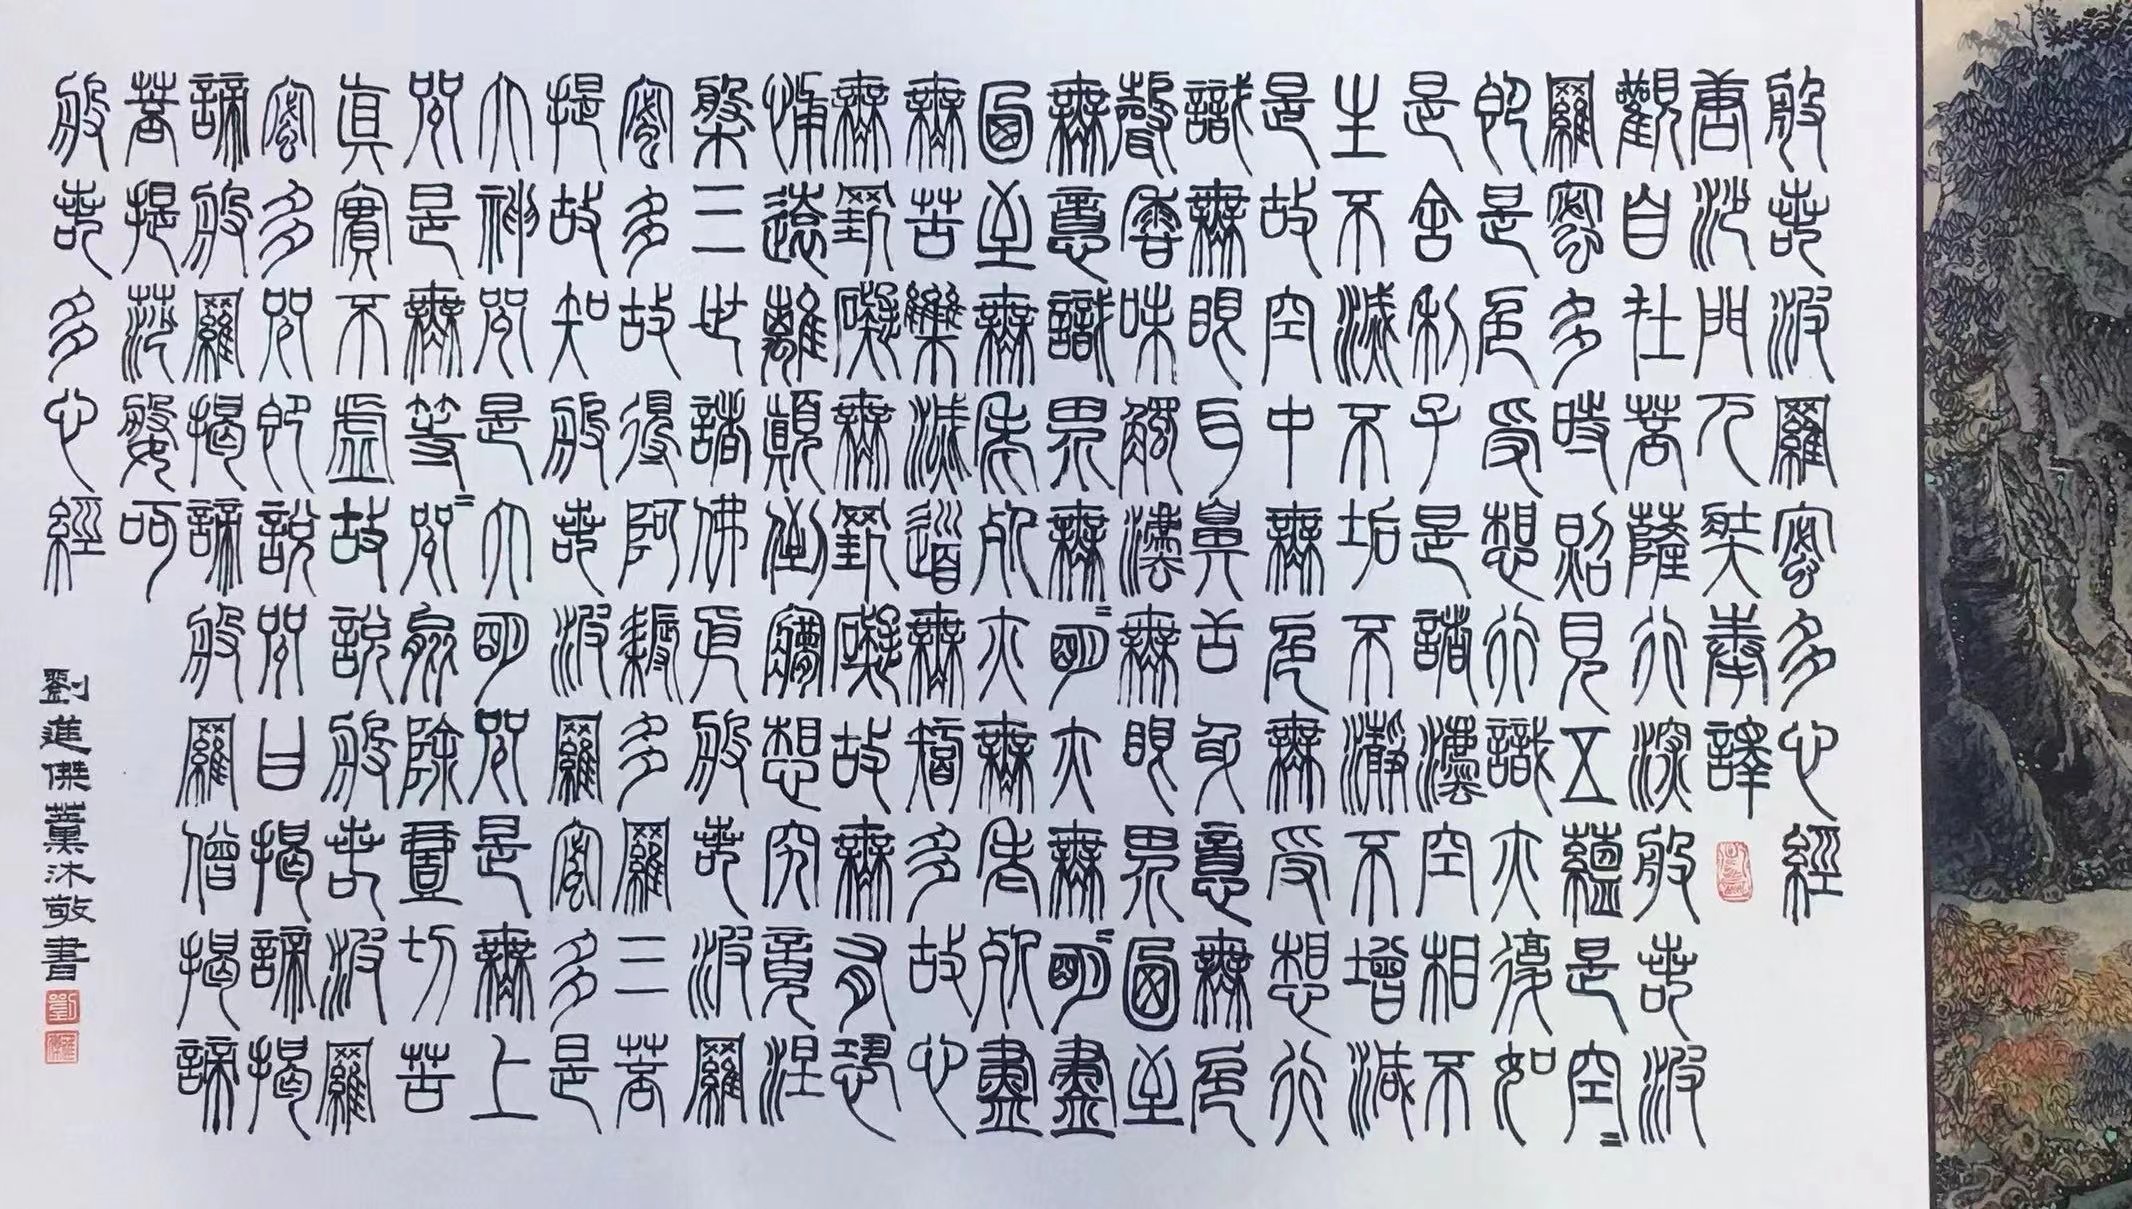 般若波羅蜜多心經
唐沙門元奘奉譯
觀自在菩薩行深般若波
羅蜜多時照見五蘊是空〻
即是色受想行識亦復如
是舍利子是諸法空相不
生不滅不垢不淨不增減
是故空中無色無受想行
識無眼耳鼻舌身意無色
聲香味觸法無眼界迺至
無意識界無〻明亦無明〻盡
迺至無老死亦無老死盡
無苦集滅道無智多故心
無罣礙無罣礙故無有恐
怖遠離顛倒夢想究竟涅
槃三世諸佛依般若波羅
蜜多故得阿耨多羅三菩
提故知般若波羅蜜多是
大神咒是大明咒是無上
咒是無等〻咒能除壹切苦
真實不虛故說般若波羅
蜜多咒即說咒曰揭諦揭
諦般羅揭諦般羅僧揭諦
菩提莎婆呵
般若多心經
劉進傑薰沐敬書
劉